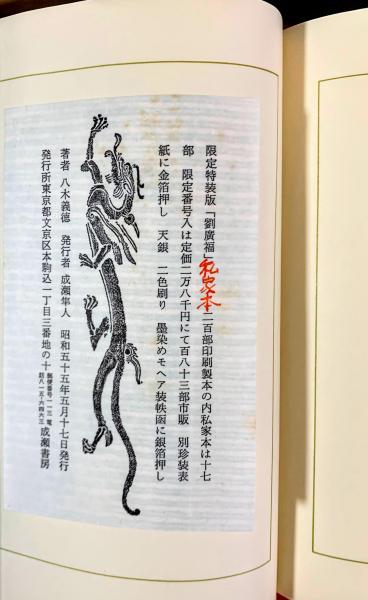 限定特装版「劉廣福」私家本二百部印刷製本の内私家本は十七
部 限定番号入は定価二万八千円にて百八十三部市販 別珍装表
紙に金箔押し 天銀 二色刷り 墨染めモヘア装帙函に銀箔押し
著者 八木義徳 発行者 成瀬隼人 昭和五十五年五月十七日発行
発行所東京都文京区本駒込一丁目三番地の十 郵便番号一一三 電話八一五・六四六三 成瀬書房